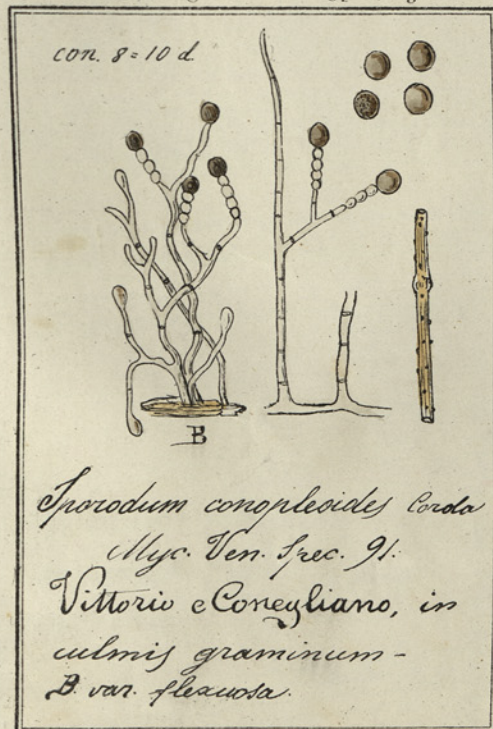 con. 8=10 d.
B
Sporodum conopleoides Corda
Myc. Ven. Spec. 91.
Vittorio e Conegliano, in
culmis graminum-
B. var. flexuosa.